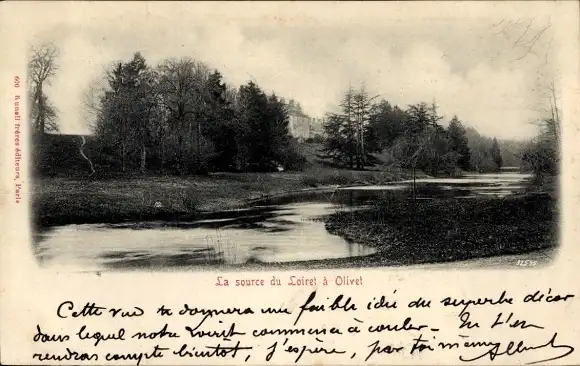 600 Kunzli frères éditeurs, Paris
32535
La source du Loiret à Olivet
Cette vue te donnera une faible idée du superbe décor
dans lequel notre Loiret commence à couler - Tu t'en
rendras compte bientôt, j'espère, par toi même, Albert